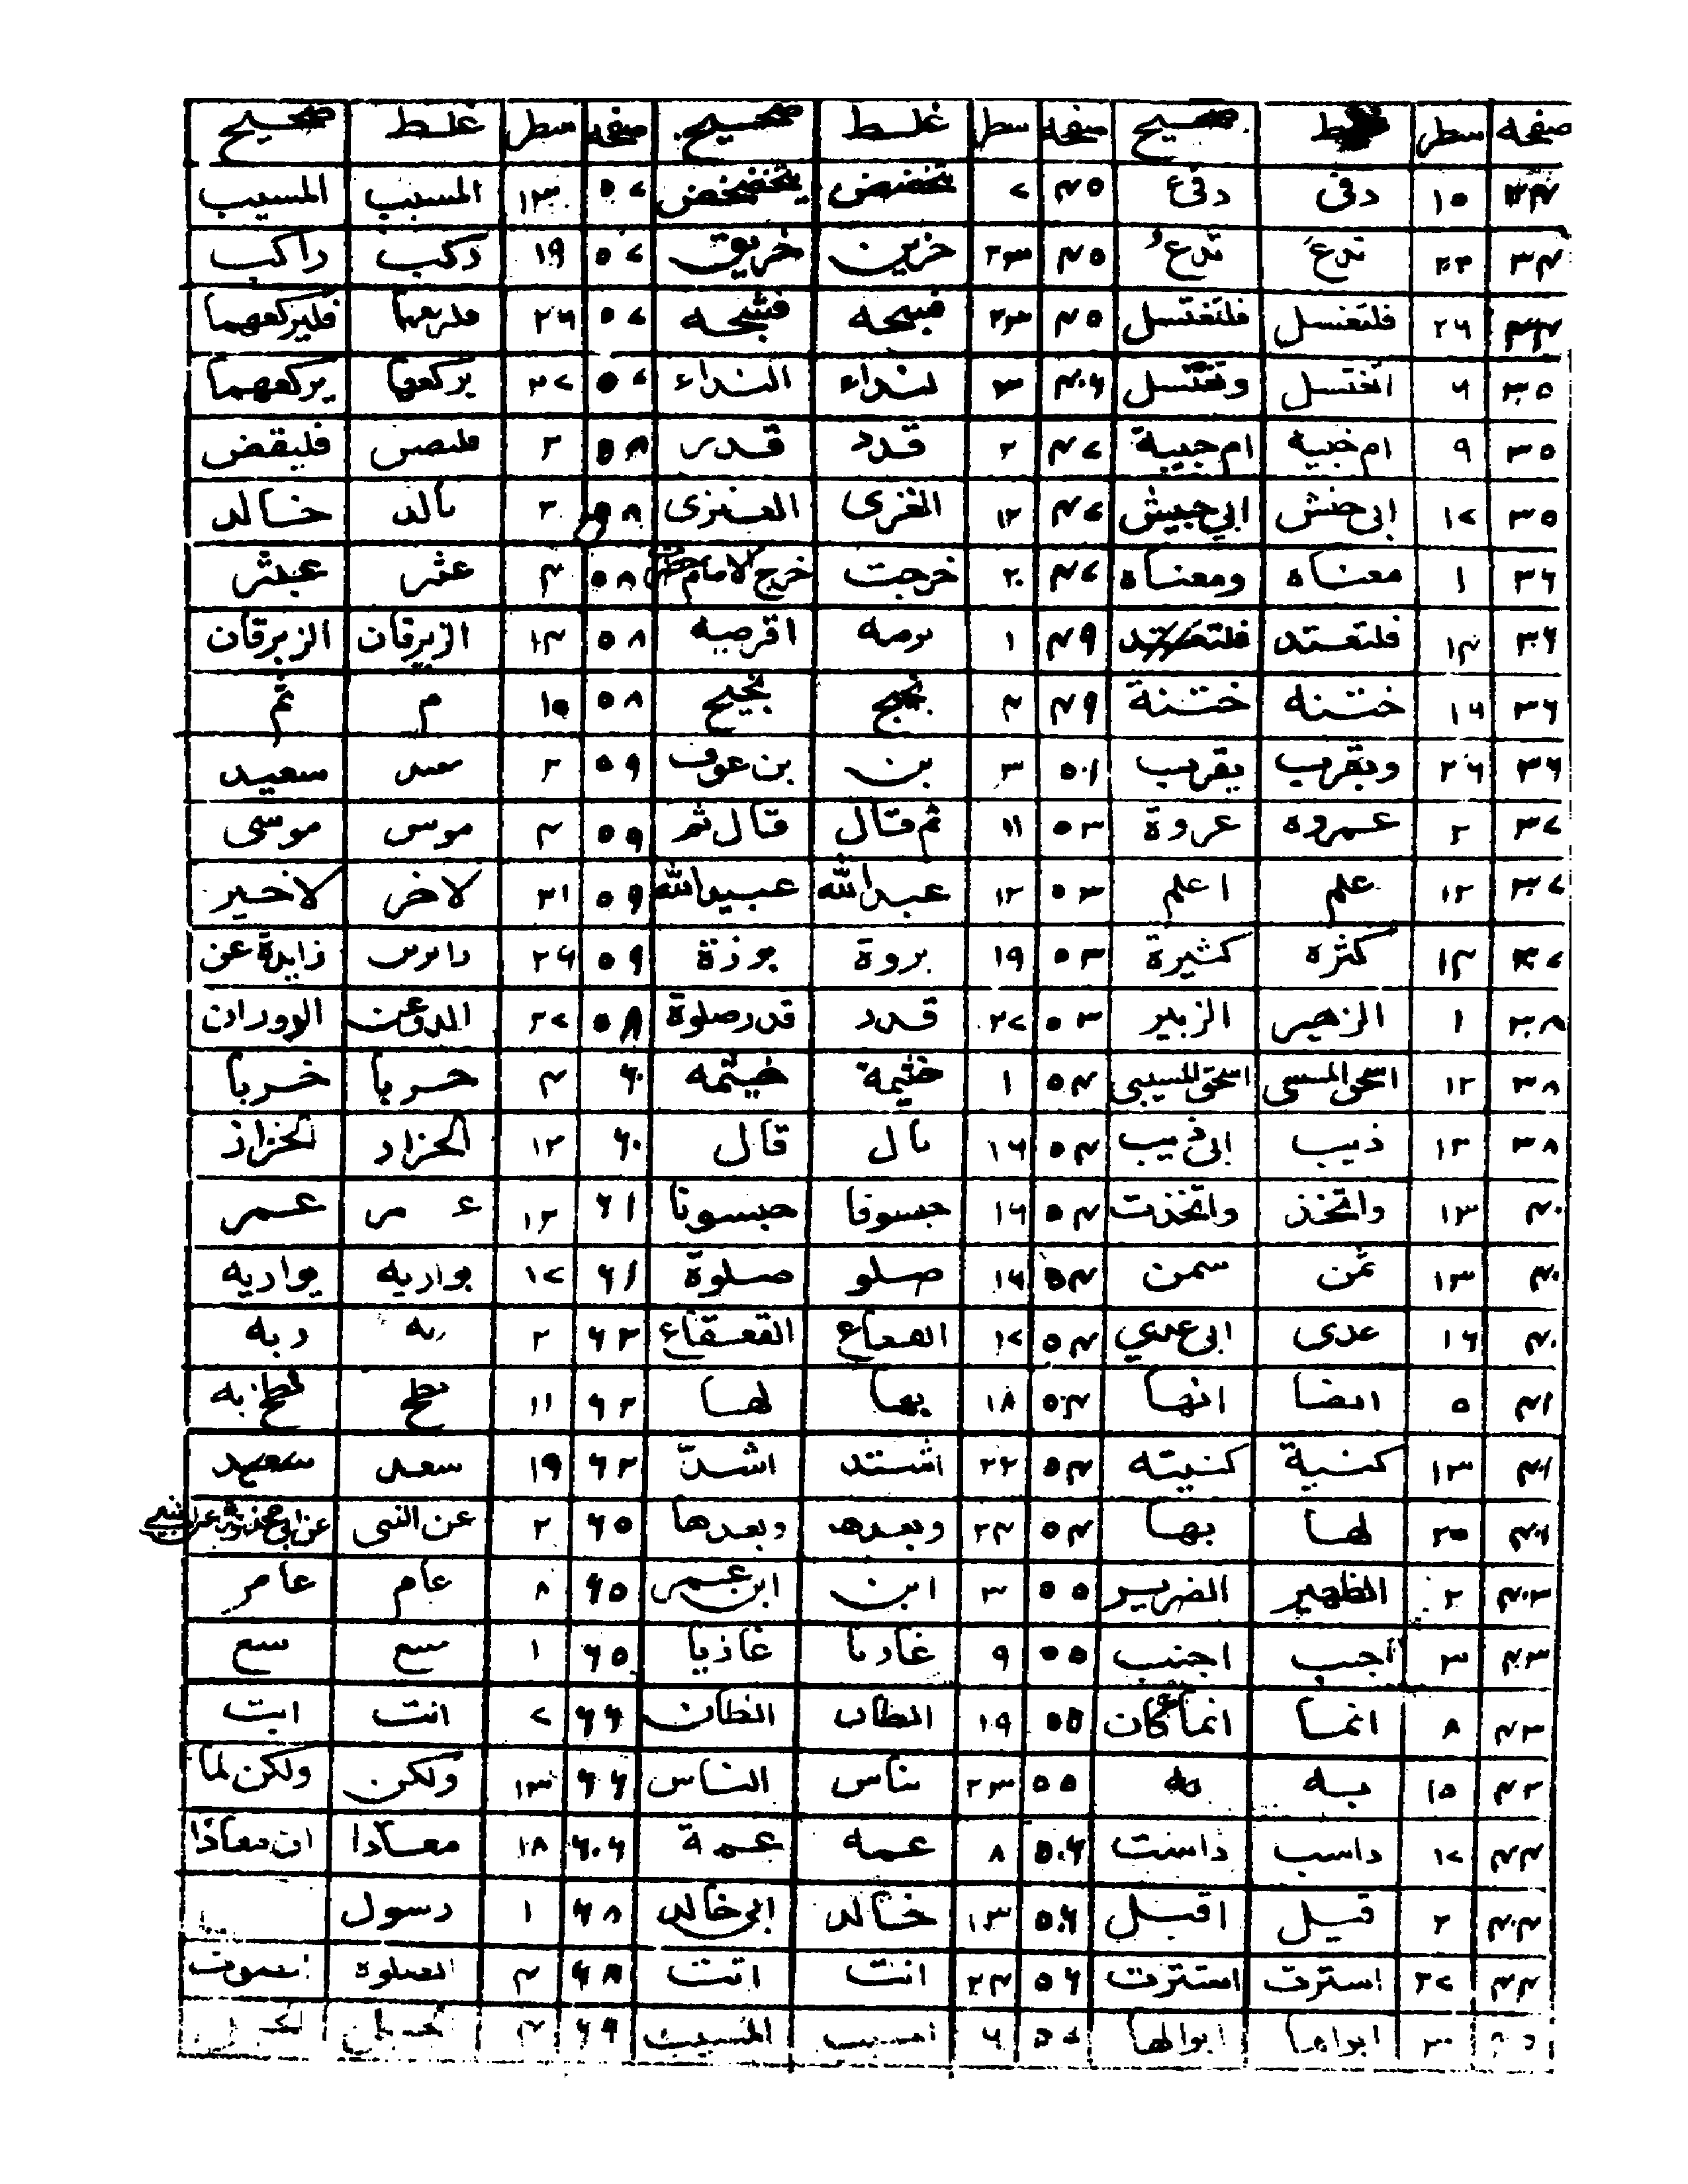 صفحه سطر غلط صحيح صفحه سطر غلط صحيح صفحه سطر غلط صحيح
۳۴ ۱۵ دفى دفئ ۴۵ ۷ يتخضض يتخضخض ۵۷ ۱۳ المسبب المسيب
۳۴ ۲۳ تدعَ تدعُ ۴۵ ۲۳ خزين خريق ۵۷ ۱۹ ذكب راكب
۳۴ ۲۶ فلتغنسل فلتغتسل ۴۵ ۲۳ فبجه فشجه ۵۷ ۲۶ فليركعهما
۳۵ ۶ اتغتسل وتغتسل ۴۶ ۳ لنداء النداء ۵۷ ۲۷ يركعها يركعهما
۳۵ ۹ ام خبيه ام حبيبة ۴۷ ۲ قدد قدر ۵۸ ۲ فلينقض
۳۵ ۱۷ ابى حنش ابي حبيش ۴۷ ۱۲ الغزى العنزى ۵۸ ۳ بالد خالد
۳۶ ۱ معناه ومعناه ۴۷ ۲۰ خرجت ۵۸ ۴ عثر عبثر
۳۶ ۱۴ فلتعستد فلتعتد ۴۹ ۱ برصه اقرصيه ۵۸ ۱۴ الزيرقان الزبرقان
۳۶ ۱۶ ختنه ختنة ۴۹ ۴ نجيح ۵۸ ۱۵ م ثم
۳۶ ۲۶ وبقرب بقريب ۵۱ ۳ بن بن عوف ۵۹ ۲ سعيد
۳۷ ۲ عمروه عروة ۵۳ ۱۱ ثم قال قال ثم ۵۹ ۴ موس موسى
۳۷ ۱۲ علم اعلم ۵۳ ۱۲ عبد الله عبيد الله ۵۹ ۲۱ لاخر لاخير
۳۷ ۱۴ كثره كثيرة ۵۳ ۱۹ بروة برزة ۵۹ ۲۶ زايدة عن
۳۸ ۱ الزهير الزبير ۵۳ ۲۷ قدد قدر صلوة ۵۸ ۲۷
۳۸ ۱۲ اسحق المسى اسحق المسيبى ۵۴ ۱ خثيمة خيثمه ۶۰ ۴ حربا خربا
۳۸ ۱۳ ذيب ابى ذيب ۵۴ ۱۶ بال قال ۶۰ ۱۲ الحزاد الخزاز
۴۰ ۱۳ واتخذ واتخذت ۵۴ ۱۶ حبسوفا حبسونا ۶۱ ۱۲ ع مر عمر
۴۰ ۱۳ ثمن سمن ۵۴ ۱۶ صلو صلوة ۶۱ ۱۷ بواريه يواريه
۴۰ ۱۶ عدى ابى عدي ۵۴ ۱۷ القعقاع ۶۲ ۲ به ربه
۴۱ ۵ ايضا انها ۵۴ ۱۸ بها لها ۶۲ ۱۱
۴۱ ۱۳ كنبية كنيته ۵۴ ۲۲ اشتد اشدّ ۶۲ ۱۹ سعد سعيد
۴۱ ۲۵ لها بها ۵۴ ۲۴ وبعدهد وبعدها ۶۵ ۲ عن النبى
۴۳ ۲ الظهير الضرير ۵۵ ۳ ابن ابن عمر ۶۵ ۸ عام عامر
۴۳ ۳ اجب اجنب ۵۵ ۹ غادنا غاذيا ۶۵ ۱ سع سع
۴۳ ۸ انما انما كان ۵۵ ۱۹ القطان ۶۶ ۷ انت ابت
۴۳ ۱۵ به ۵۵ ۲۳ بناس الناس ۶۶ ۱۳ ولكن ولكن لما
۴۴ ۱۷ داسب داست ۵۶ ۸ عمه عمة ۶۶ ۱۸ معاذا ان معاذا
۴۴ ۲ قيل اقبل ۵۶ ۱۳ خالد ابى خالد ۶۸ ۱ رسول
۴۴ ۲۷ استرت استترت ۵۶ ۲۴ انت اتت ۶۸ ۴ الصلوة
ابواها ابوالها ۵۷ ۶ المسيب ۶۹ ۴